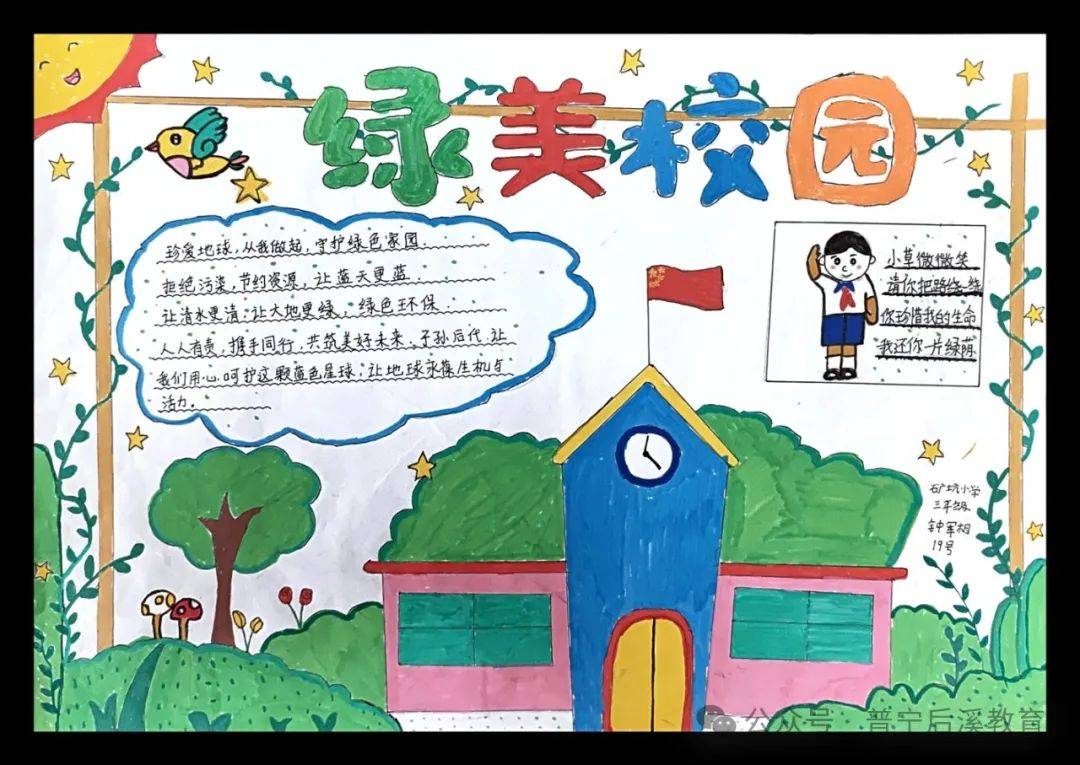 绿美校园
珍爱地球，从我做起，守护绿色家园.
拒绝污染，节约资源，让蓝天更蓝.
让清水更清，让大地更绿，绿色环保
人人有责，携手同行，共筑美好未来、子孙后代，让
我们用心呵护这颗蓝色星球，让地球永葆生机与
活力。
小草微微笑
请你把路绕一绕
你珍惜我的生命
我还你一片绿荫
矿坑小学
三年级
钟军相
19号
公众号 普宁后溪教育